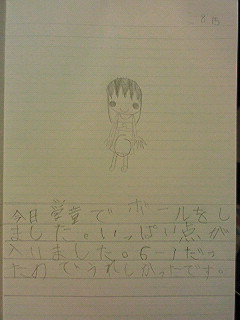 8 15
今日学童でボールをし
ました。いっぱい点が
入りました。6-1だっ
たわでうれしかったです。